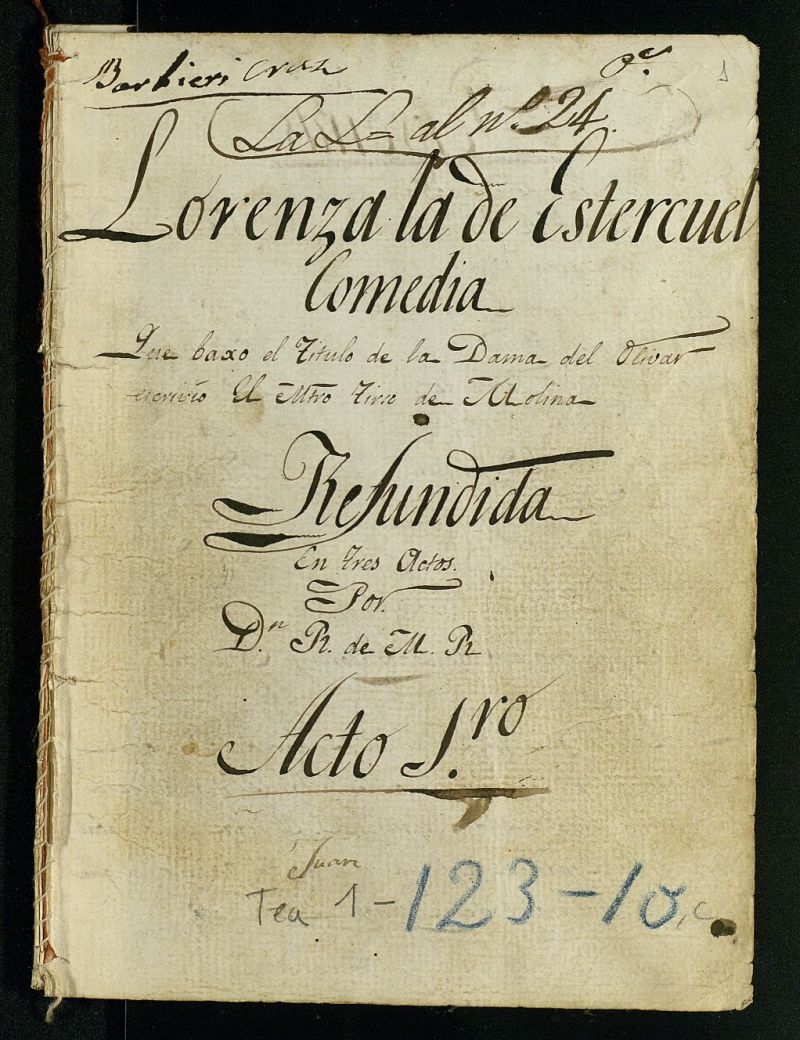 Barbieri Cruz
1
La L= al nº. 24.
Lorenza la de Estercuel
Comedia
Que baxo el titulo de la Dama del Olivar
escrivio El Mtro Tirso de Molina
Refundida
En tres Actos.
Por
D.n R. de M. R
Acto 1.ro
Juan
Tea 1-123-10,c